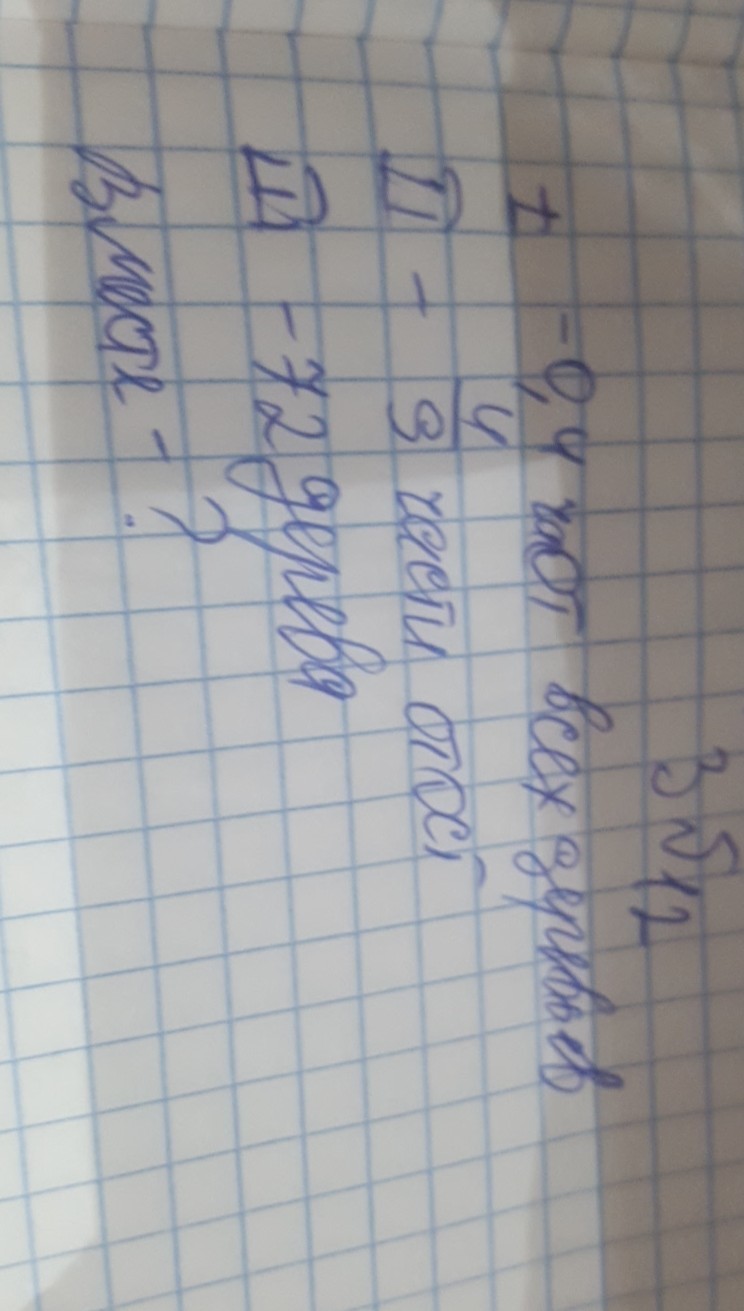 З №12
I - 0,4 част всех деревьев
II - 4/9 части от ост
III - 72 дерева
Вместе - ?